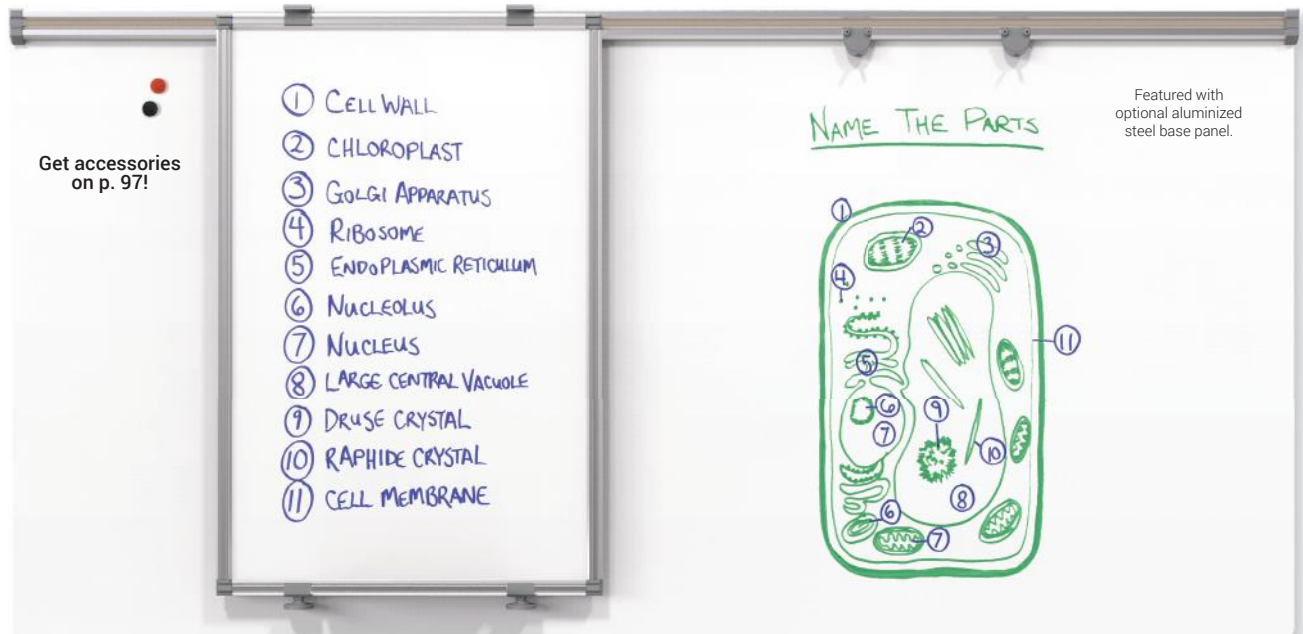 Get accessories
on p. 97!
① CELL WALL
② CHLOROPLAST
③ GOLGI APPARATUS
④ RIBOSOME
⑤ ENDOPLASMIC RETICULUM
⑥ NUCLEOLUS
⑦ NUCLEUS
⑧ LARGE CENTRAL VACUOLE
⑨ DRUSE CRYSTAL
⑩ RAPHIDE CRYSTAL
⑪ CELL MEMBRANE
NAME THE PARTS
Featured with
optional aluminized
steel base panel.
①
②
③
④
⑪
⑤
⑥
⑨
⑦
⑩
⑧
⑥
⑦